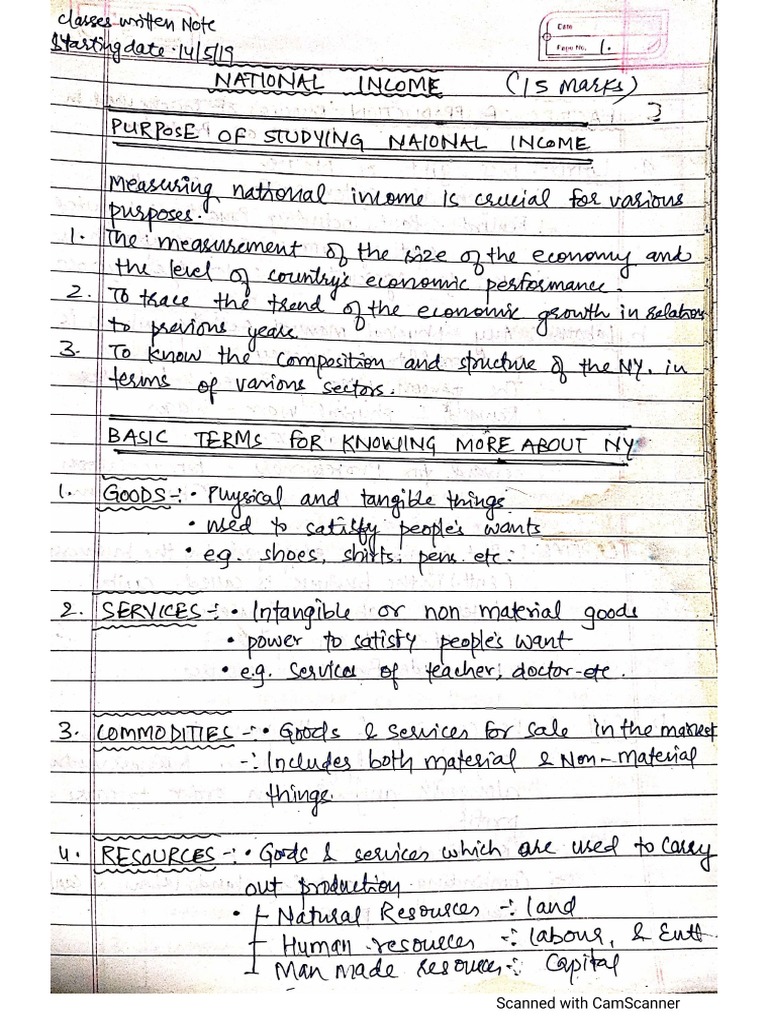 classes written Note
Starting date :14/5/19
Date
Page No. 1.
NATIONAL INCOME (15 Marks)
PURPOSE OF STUDYING NAIONAL INCOME
Measuring national income is crucial for various
purposes.
1. The measurement of the size of the economy and
the level of country's economic performance.
2. To trace the trend of the economic growth in relation
to previous years.
3. To know the composition and structure of the NY. in
terms of various sectors.
BASIC TERMS FOR KNOWING MORE ABOUT NY
1. GOODS -: • Physical and tangible things
• used to satisfy people's wants
• e.g. shoes, shirts, pens. etc.
2. SERVICES -: • Intangible or non material goods
• power to satisfy people's want
• e.g. services of teacher, doctor-etc.
3. COMMODITIES -: • Goods & services for sale in the market
-: Includes both material & Non-material
things.
4. RESOURCES -: • Goods & services which are used to carry
out production.
• Natural Resources -: land
Human resources -: labour, & Entt.
Man made resources -: Capital
Scanned with CamScanner